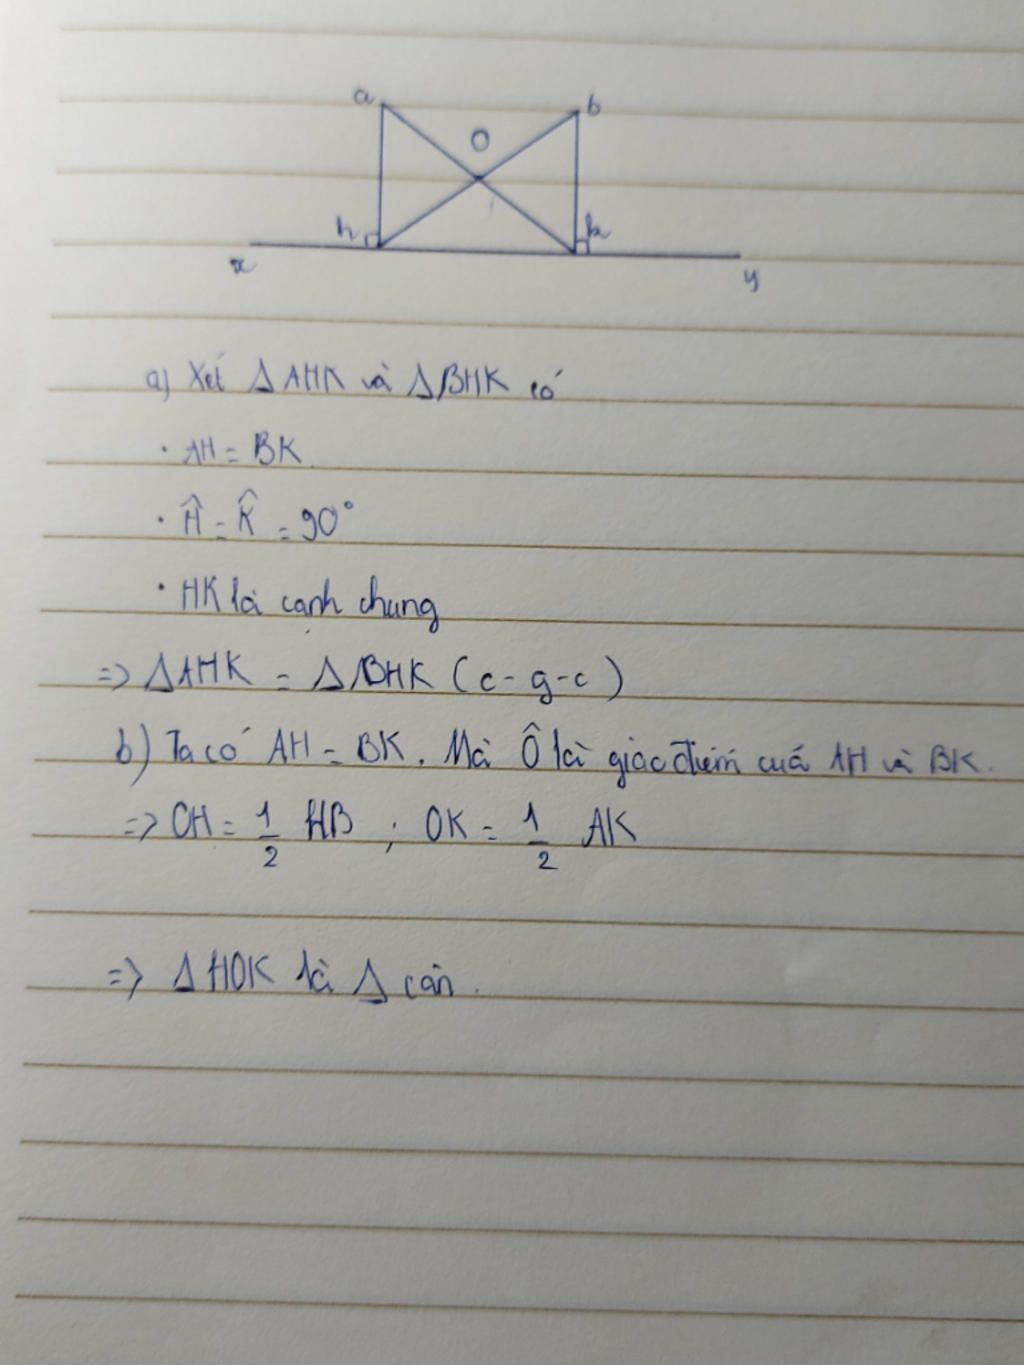 a b
O
h k
x y
a) Xét Δ AHK và Δ BHK có
· AH = BK
· Ĥ = K̂ = 90°
· HK là cạnh chung
=> Δ AHK = Δ BHK (c-g-c)
b) Ta có AH = BK. Mà Ô là giao điểm của AH và BK.
=> OH = 1/2 HB ; OK = 1/2 AK
=> Δ HOK là Δ cân.